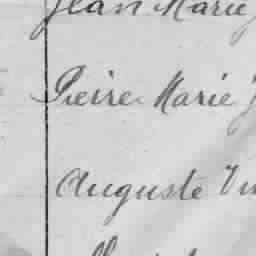 Jean Marie
Pierre Marie
Auguste